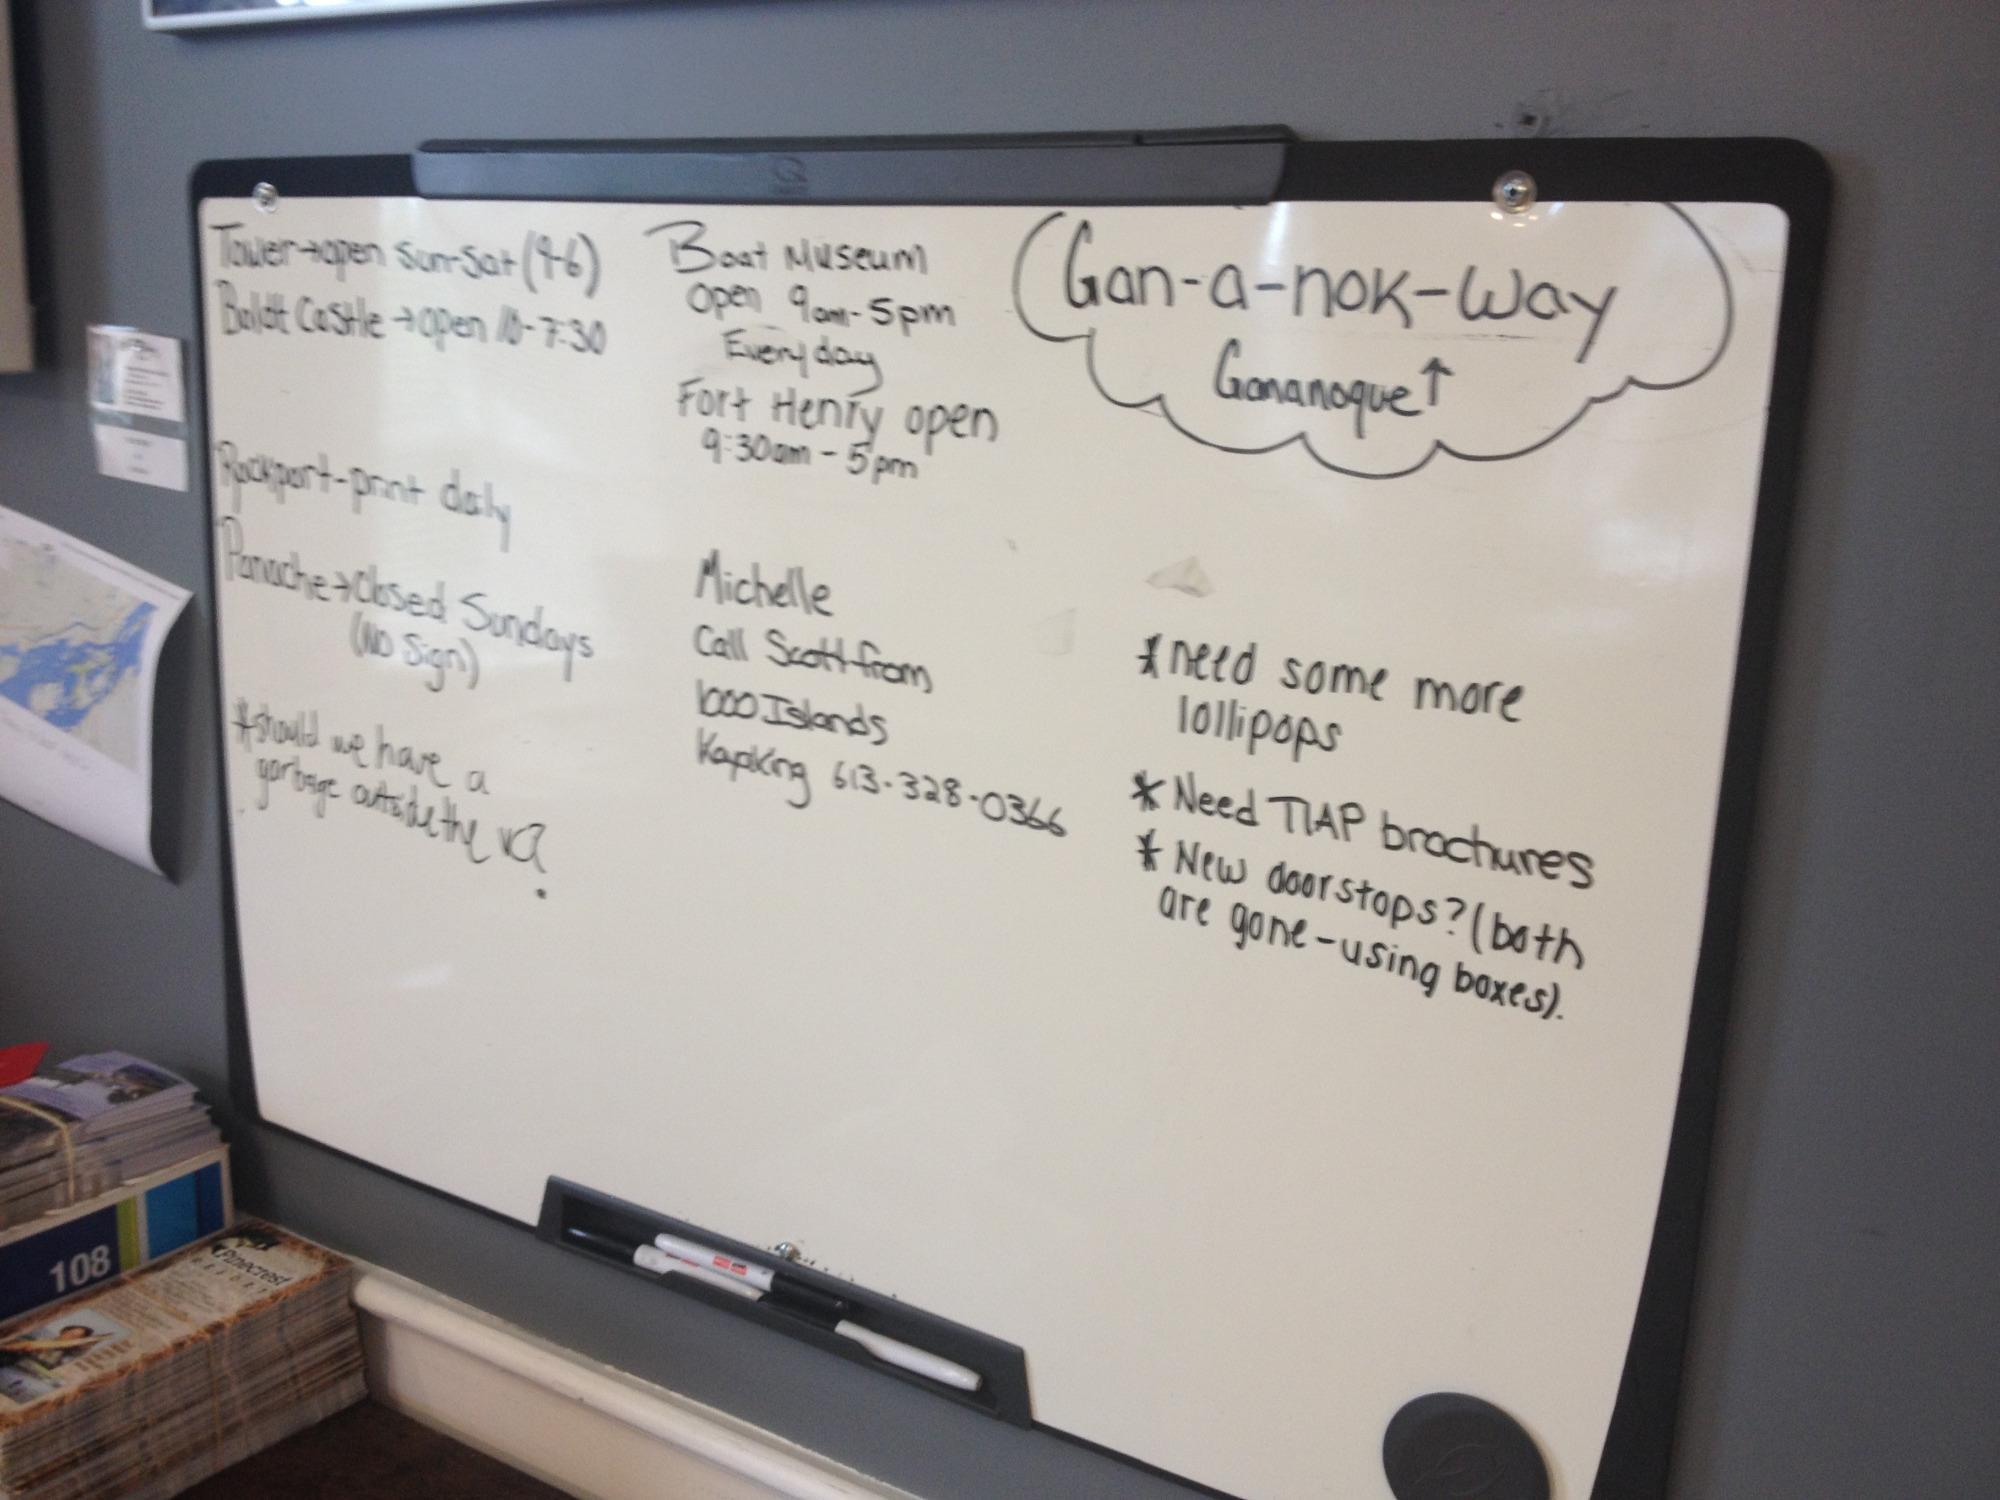 Tower→open Sun-Sat (9-6)
Boldt Castle →open 10-7:30
Rockport-print daily
Panache→Closed Sundays
(No Sign)
*should we have a
garbage outside the VC?
Boat Museum
Open 9am-5pm
Everyday
Fort Henry open
9:30am - 5pm
Michelle
Call Scott from
1000 Islands
Kayking 613-328-0366
Gan-a-nok-way
Gananoque↑
*need some more
lollipops
* Need TIAP brochures
* New doorstops? (both
are gone-using boxes).
108
Pinecrest